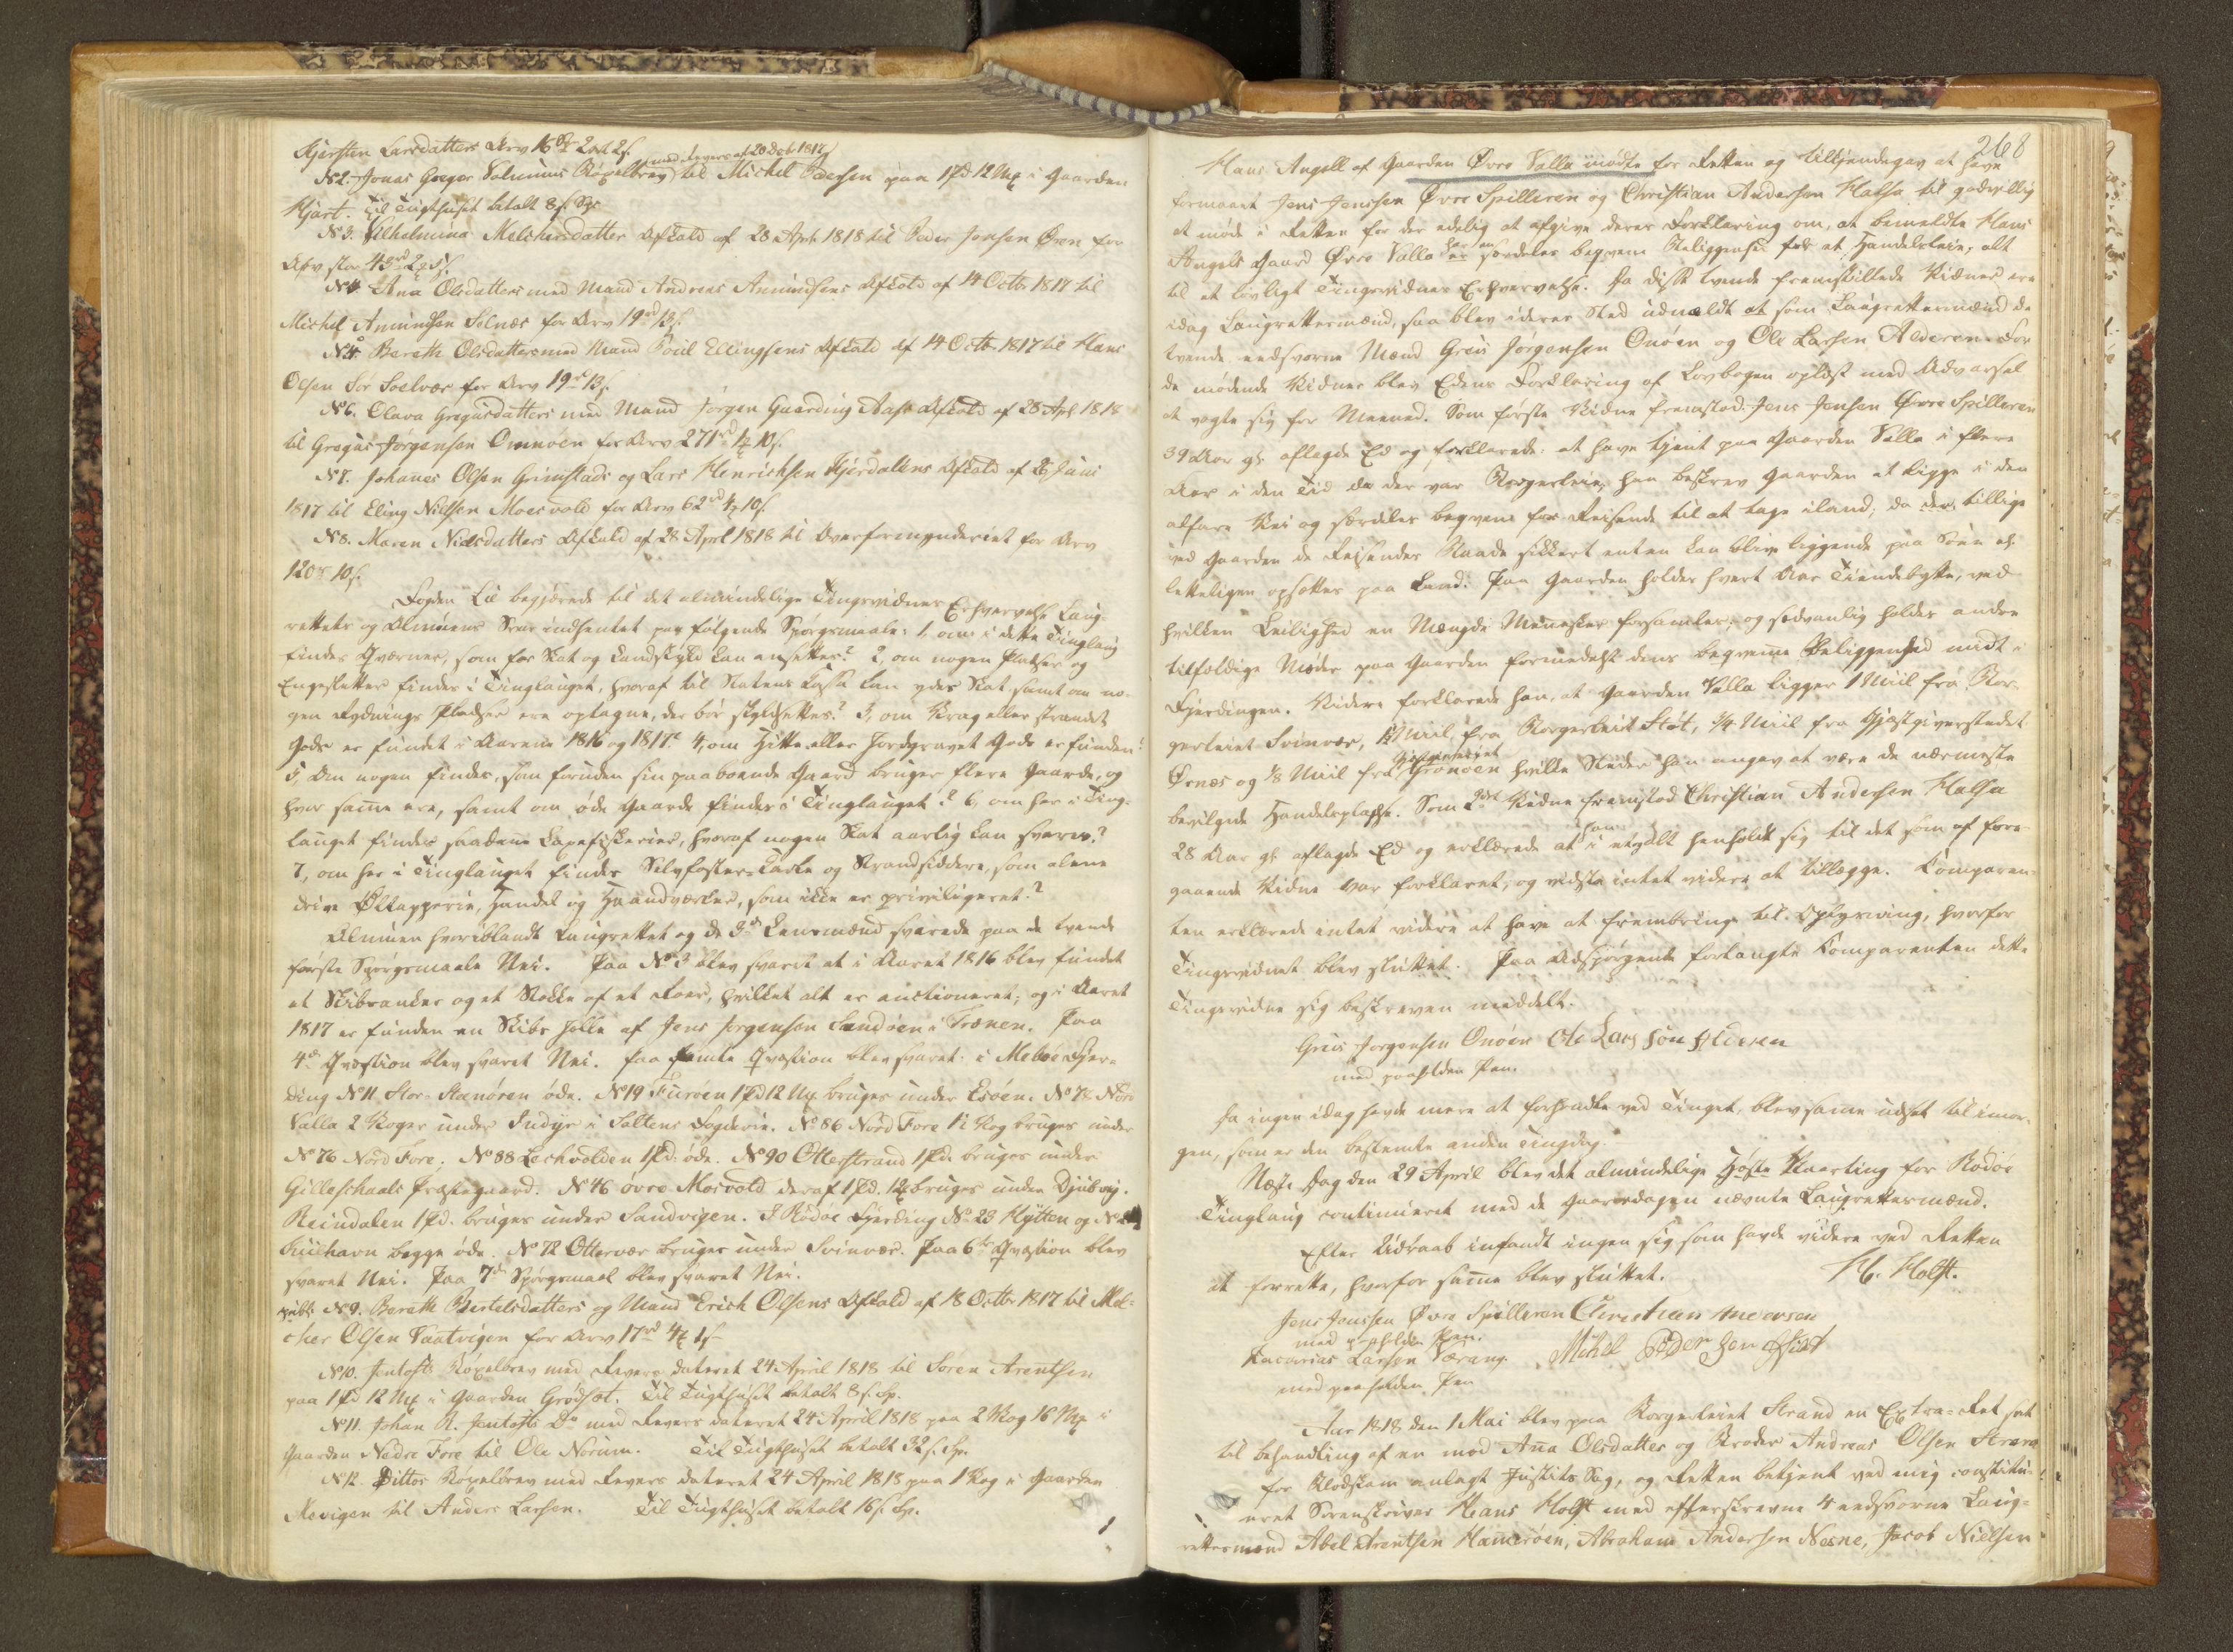 Kjersten Larsdatters Arv 16 Sp 2 ort 2 s.
No 2. Jonas Greger Salamius Bøxelbrev med Revers af 20 Feb 1817 til Michel Paulsen paa 1 Pd 12 Mk i Gaarden
Hjart. Til Tugthuset betalt 8 s. Sp.
No 3. Vilhelmina Melchersdatter Afkald af 28 April 1818 til Peder Jensen Øren for
Arv stor 43 rd 2
No 4. Ana Olsdatters med Mand Andreas Amundsens Afkald af 14 Octbr 1817 til
Michel Amundsen Selnæs for Arv 19 rd 13 s.
No 5. Bereth Olsdatters med Mand Poul Ellingsens Afkald af 14 Octbr 1817 til Hans
Olsen Sør Soelvær for Arv 19 rd 13 s.
No 6. Olava Gregusdatters med Mand Jørgen Gaarding Aase Afkald af 28 Apl 1818
til Gregus Jørgensen Omnøen for Arv 271 rd 1 10 s.
No 7. Johanes Olsen Grimstads og Lars Henrichsen Kjerdalens Afkald af 26 Juni
1817 til Eling Nilsen Moesvold for Arv 62 rd 4 10 s.
No 8. Maren Nielsdatters Afkald af 28 April 1818 til Overformynderiet for Arv
120 rd 10 s.
Fogden Lie begjærede til det almindelige Tingsvidnes Erhvervelse Laug-
rettets og Almuens Svar indhentet paa følgende Spørgsmaale: 1, om i dette Tinglaug
findes Qværner, som for Skat og Landskyld kan ansættes? 2, om nogen Pladser og
Engesletter findes i Tinglauget, hvoraf til Statens Cassa kan ydes Skat samt om no-
gen Rydnings Pladser ere optagne, der bør skyldsættes? 3, om Vrag eller strandet
Gods er fundet i Aarene 1816 og 1817? 4, om Hitte eller Jordgravet Gods er funden?
5, Om nogen findes, som foruden sin paaboende Gaard bruger flere Gaarde, og
hvor same ere, samt om øde Gaarde findes i Tinglauget? 6, om her i Ting-
lauget findes saadane Laxefiskerier, hvoraf nogen Skat aarlig kan svares?
7, om her i Tinglauget findes Selvfosterkarle og Strandsiddere, som alene
drive Øltapperie, Handel og Haandværker, som ikke er priviligeret?
Almuen hvoriblandt Laugrettet og de 3de Lensmænd svarede paa de tvende
første Spørgsmaale Nei. Paa No 3 blev svaret at i Aaret 1816 blev fundet
et Skibsanker og et Stokke af et Roer, hvilket alt er auctioneret; og i Aaret
1817 er funden en Skibs Jolle af Jens Jørgensen Sandøen i Trænen. Paa
4de Qvæstion blev svaret Nei. Paa femte Qvæstion blev svaret: i Meløe Fjer-
ding No 11 Stor Stenøren øde. No 19 Furøen 1 Pd 12 Mk bruges under Esøen. No 78 Nord
Valla 2 Vog under Indyr i Saltens Fogderie. No 86 Nord Fore 1½ Vog bruges under
No 76 Nord Fore. No 88 Lechvolden 1 Pd. øde. No 90 Otterstrand 1 Pd. bruges under
Gilleschaals Præstegaard. No 46 øvre Mosvold deraf 1 Pd. 12 bruges under Djubvig.
Reindalen 1 Pd. bruges under Sandvigen. I Rødøe Fjerding No 23 Hytten og No
Kuuhavn begge øde. No 72 Ottervær bruges under Svinvær. Paa 6te Qvæstion blev
svaret Nei. Paa 7de Spørgsmaal blev svaret Nei.
publ: No 9. Bereth Bertelsdatters og Mand Erich Olsens Afkald af 18 Octbr 1817 til Mel-
cher Olsen Vaatvigen for Arv 17 rd 4 1 s.
No 10. Jentofts Bøxelbrev med Revers dateret 24 April 1818 til Søren Arentsen
paa 1 Pd 12 Mk i Gaarden Grødsæt. Til Tugthuset betalt 8 s. Sp.
No 11. Johan R. Jentofts Do med Revers dateret 24 April 1818 paa 2 Vog 16 Mk i
Gaarden Nedre Fore til Ole Norum. Til Tugthuset betalt 32 s. Sp.
No 12. Dittos Bøxelbrev med Revers dateret 24 April 1818 paa 1 Vog i Gaarden
Mevigen til Anders Larsen. Til Tugthuset betalt 16 s. Sp.
268
Hans Angell af Gaarden Øvre Valla mødte for Retten og tilkjendegav at have
formaaet Jens Jensen Øvre Spilleren og Christian Andersen Halsa til godvillig
at møde i Retten for der edelig at afgive deres Forklaring om, at bemeldte Hans
Angels Gaard Øvre Valla har en særdeles beqvem Beliggenhed for et Handelsleie, alt
til et lovligt Tingsvidnes Erhvervelse. Da disse tvende fremstillede Vidner ere
idag Laugrettesmænd, saa blev i deres Sted udmeldt at som Laugrettesmænd de
tvende eedsvorne Mænd Greis Jørgensen Onøen og Ole Larsen Alderen. For
de mødende Vidner blev Edens Forklaring af Lovbogen oplæst med Advarsel
at vogte sig for Meened. Som første Vidne fremstod Jens Jensen Øvre Spilleren
39 Aar gl. aflagde Ed og forklarede: at have tjent paa Gaarden Valla i flere
Aar i den Tid da der var Borgerleie, han beskrev Gaarden at ligge i den
alfare Vei og særdeles beqvem for Reisende til at tage iland, da der tillige
ved Gaarden de Reisendes Baade sikkert enten kan blive liggende paa Søen el.
letteligen opsættes paa Land. Paa Gaarden holdes hvert Aar Tiendebytte, ved
hvilken Leilighed en Mængde Mennesker forsamles, og sædvanlig holdes andre
tilfældige Møder paa Gaarden formedelst dens beqveme Beliggenhed midt i
Fjerdingen. Videre forklarede han, at Gaarden Valla ligger 1 Miil fra Bor-
gerleiet Svinvær, 1½ Miil fra Borgerleiet Støt, 3/4 Miil fra Gjæstgiverstedet
Ørnæs og 1/8 Miil fra Gjæstgiveriet Grønøen hvilke Steder han angav at være de nærmeste
bevilgede Handelspladse. Som 2det Vidne fremstod Christian Andersen Halsa
28 Aar gl. aflagde Ed og erklærede at han i et og alt henholdt sig til det som af fore-
gaaende Vidne var forklaret, og vidste intet videre at tillægge. Comparen-
ten erklærede intet videre at have at frembringe til Oplysning, hvorfor
Tingsvidnet blev sluttet. Paa Adspørgende forlangte Comparenten dette
Tingsvidne sig beskreven meddelt.
Greis Jørgensen Onøen Ole Larsson Alderen
med paaholden Pen.
Da ingen idag havde mere at forhandle ved Tinget, blev same udsat til imor-
gen, som er den bestemte anden Tingdag.
Næste Dag den 29 April blev det almindelige Høste Vaarting for Rødøe
Tinglaug continueret med de Gaarsdagen nævnte Laugrettesmænd.
Efter Udraab infandt ingen sig som havde videre ved Retten
at forrette, hvorfor same blev sluttet. H. Holst.
Jens Jenssen Øvre Spilleren Christian Andersen
med paaholden Pen.
Zacarias Larsen Værang. Mihel Peder Sen Hiart
med paaholden Pen
Aar 1818 den 1 Mai blev paa Borgerleiet Strand en Extra-Ret sat
til behandling af en mod Ana Olsdatter og Broder Andreas Olsen Strand
for Blodskam anlagt Justits Sag, og Retten betjent ved mig constitu-
eret Sorenskriver Hans Holst med efterskrevne 4 eedsvorne Laug-
rettesmænd Abel Arentsen Hamerøen, Abraham Andersen Nesne, Jacob Nielsen